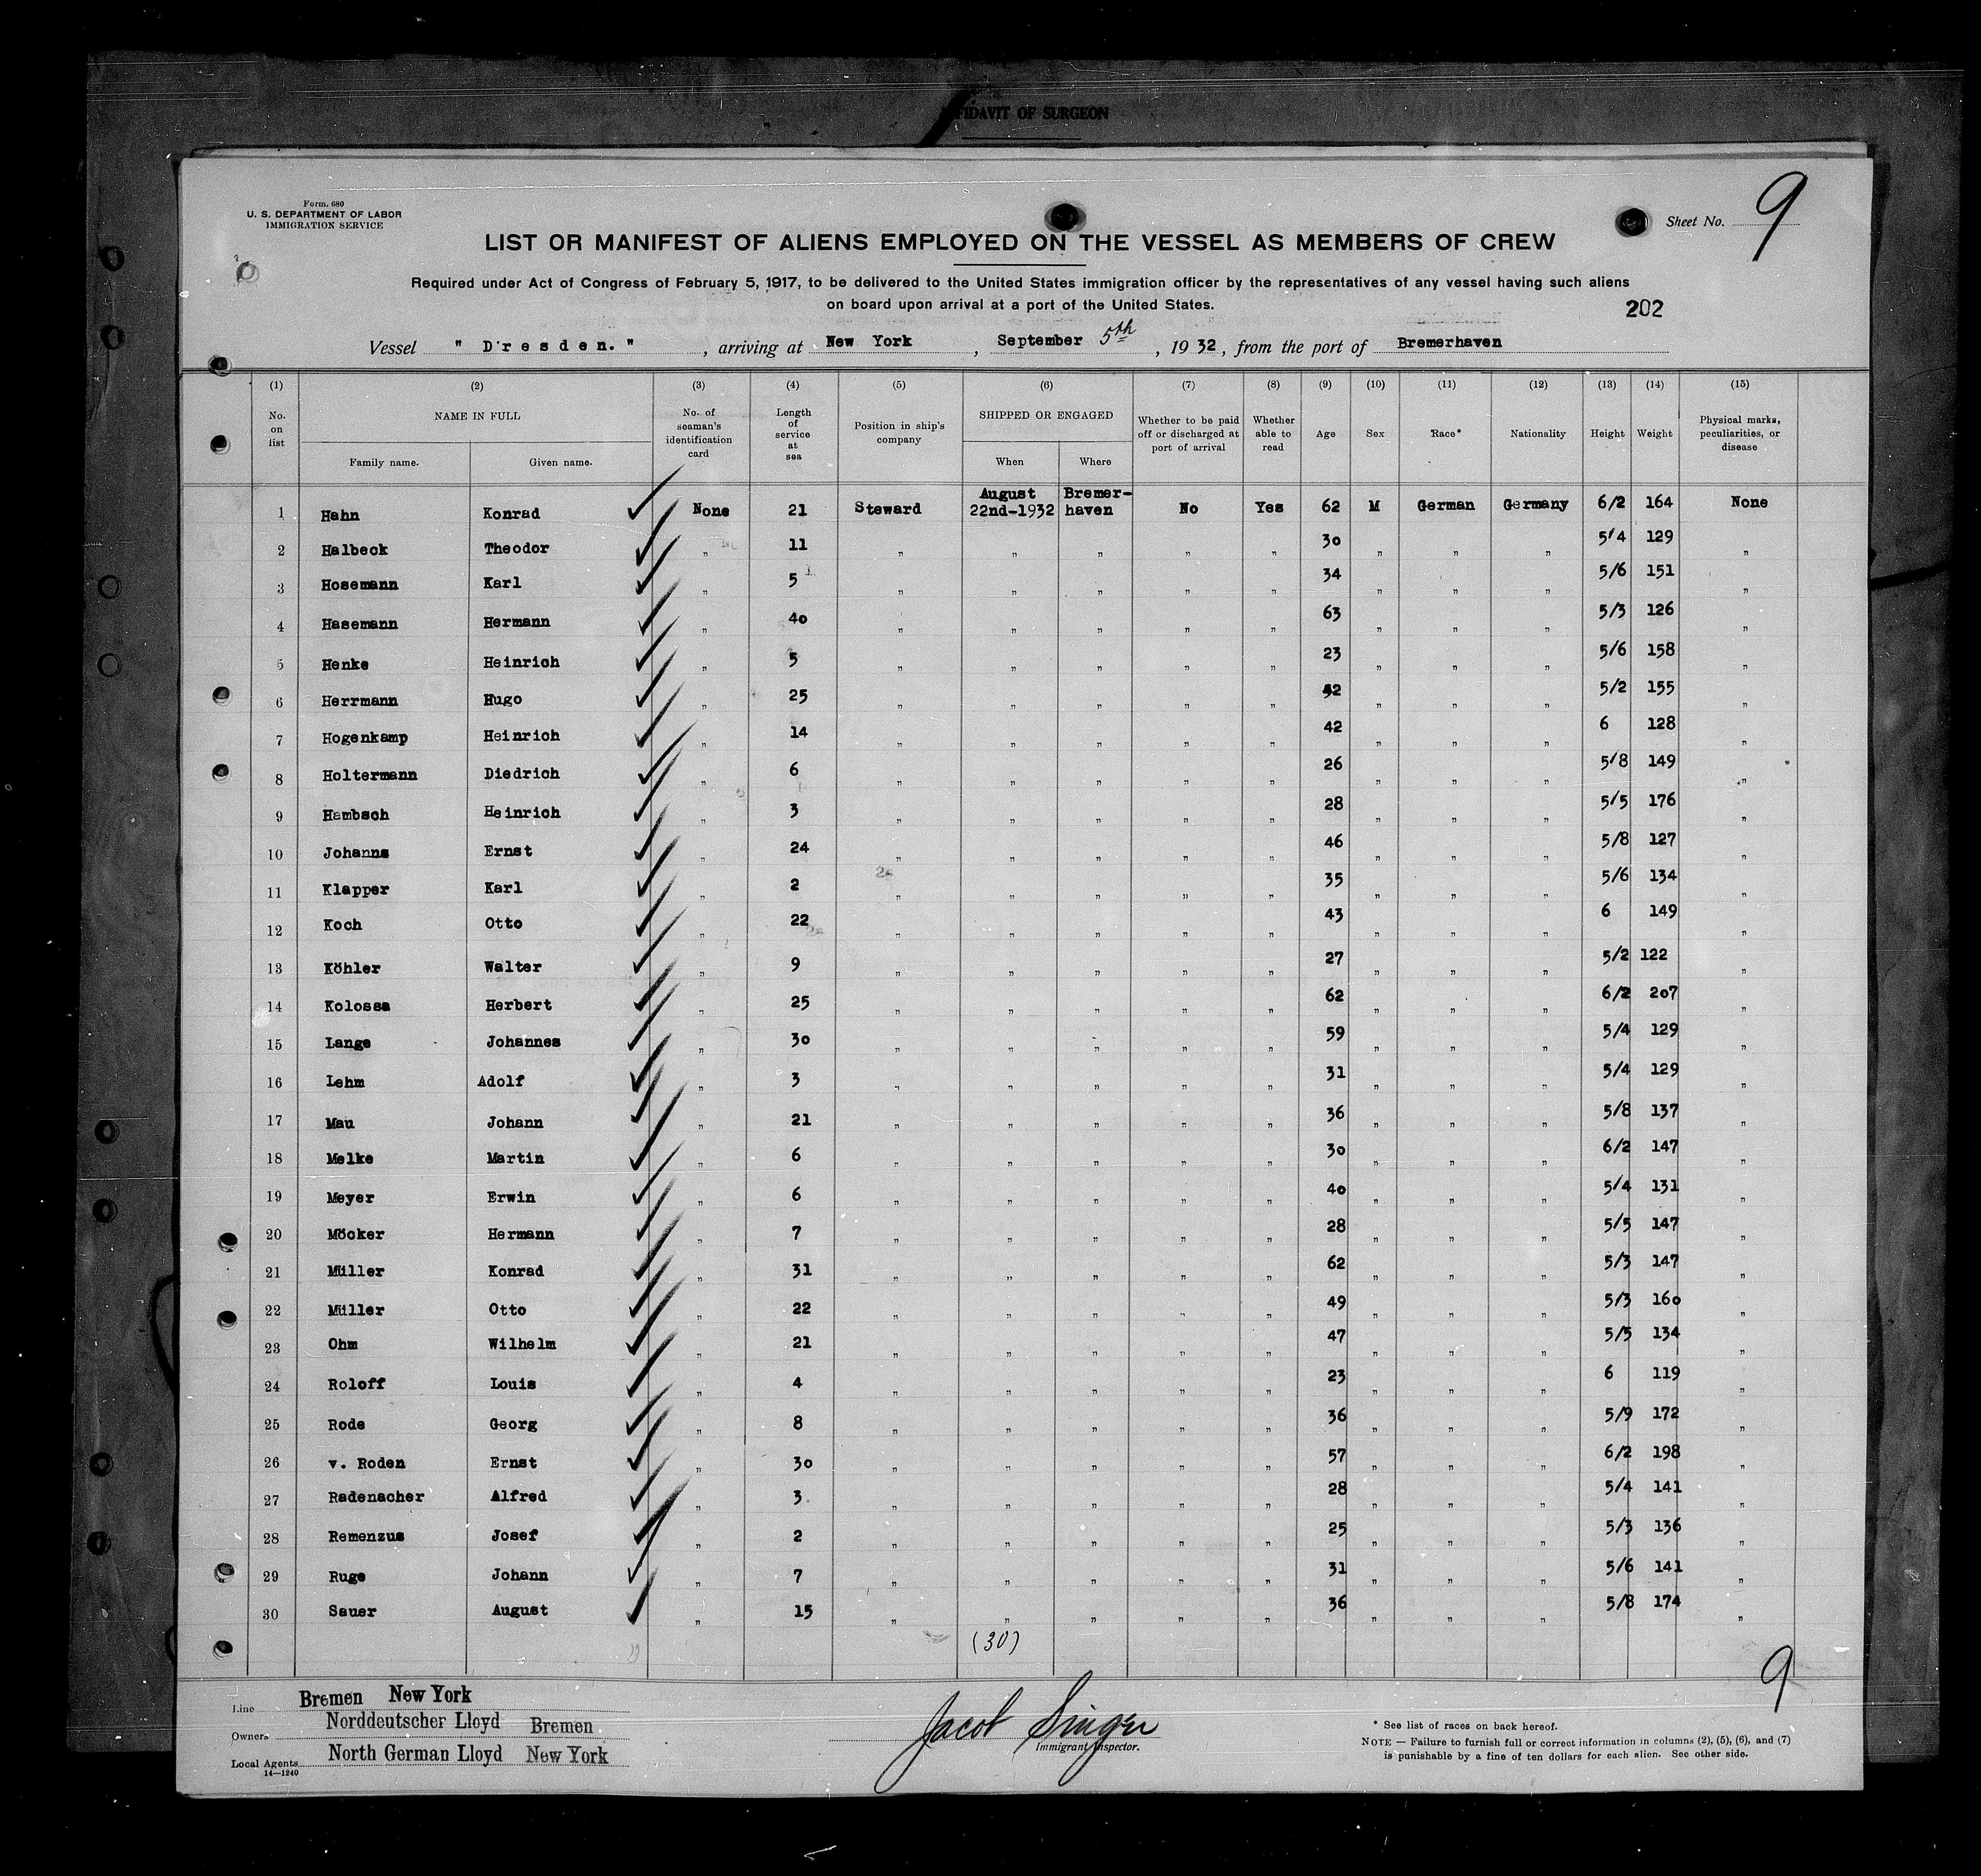 AFFIDAVIT OF SURGEON
Form. 680
U. S. DEPARTMENT OF LABOR
IMMIGRATION SERVICE
Sheet No. 9
LIST OR MANIFEST OF ALIENS EMPLOYED ON THE VESSEL AS MEMBERS OF CREW
Required under Act of Congress of February 5, 1917, to be delivered to the United States immigration officer by the representatives of any vessel having such aliens
on board upon arrival at a port of the United States.
202
Vessel " Dresden. " , arriving at New York , September 5th , 19 32 , from the port of Bremerhaven
(1) (2) (3) (4) (5) (6) (7) (8) (9) (10) (11) (12) (13) (14) (15)
No. on list NAME IN FULL Family name. Given name. No. of seaman's identification card Length of service at sea Position in ship's company SHIPPED OR ENGAGED When Where Whether to be paid off or discharged at port of arrival Whether able to read Age Sex Race* Nationality Height Weight Physical marks, peculiarities, or disease
1 Hahn Konrad None 21 Steward August 22nd-1932 Bremer-haven No Yes 62 M German Germany 6/2 164 None
2 Halbeck Theodor " 11 " " " " " 30 " " " 5/4 129 "
3 Hosemann Karl " 5 " " " " " 34 " " " 5/6 151 "
4 Hasemann Hermann " 40 " " " " " 63 " " " 5/3 126 "
5 Henke Heinrich " 5 " " " " " 23 " " " 5/6 158 "
6 Herrmann Hugo " 25 " " " " " 42 " " " 5/2 155 "
7 Hogenkamp Heinrich " 14 " " " " " 42 " " " 6 128 "
8 Holtermann Diedrich " 6 " " " " " 26 " " " 5/8 149 "
9 Hambsch Heinrich " 3 " " " " " 28 " " " 5/5 176 "
10 Johanns Ernst " 24 " " " " " 46 " " " 5/8 127 "
11 Klapper Karl " 2 " " " " " 35 " " " 5/6 134 "
12 Koch Otto " 22 " " " " " 43 " " " 6 149 "
13 Köhler Walter " 9 " " " " " 27 " " " 5/2 122 "
14 Kolossa Herbert " 25 " " " " " 62 " " " 6/2 207 "
15 Lange Johannes " 30 " " " " " 59 " " " 5/4 129 "
16 Lehm Adolf " 3 " " " " " 31 " " " 5/4 129 "
17 Mau Johann " 21 " " " " " 36 " " " 5/8 137 "
18 Melke Martin " 6 " " " " " 30 " " " 6/2 147 "
19 Meyer Erwin " 6 " " " " " 40 " " " 5/4 131 "
20 Möcker Hermann " 7 " " " " " 28 " " " 5/5 147 "
21 Müller Konrad " 31 " " " " " 62 " " " 5/3 147 "
22 Müller Otto " 22 " " " " " 49 " " " 5/3 160 "
23 Ohm Wilhelm " 21 " " " " " 47 " " " 5/5 134 "
24 Roloff Louis " 4 " " " " " 23 " " " 6 119 "
25 Rode Georg " 8 " " " " " 36 " " " 5/9 172 "
26 v. Roden Ernst " 30 " " " " " 57 " " " 6/2 198 "
27 Radenacher Alfred " 3 " " " " " 28 " " " 5/4 141 "
28 Remenzus Josef " 2 " " " " " 25 " " " 5/3 136 "
29 Ruge Johann " 7 " " " " " 31 " " " 5/6 141 "
30 Sauer August " 15 " " " " " 36 " " " 5/8 174 "
(30)
9
Line Bremen New York
Owners Norddeutscher Lloyd Bremen
Local Agents North German Lloyd New York
14—1240
Jacob Singer
Immigrant Inspector.
* See list of races on back hereof.
NOTE — Failure to furnish full or correct information in columns (2), (5), (6), and (7)
is punishable by a fine of ten dollars for each alien. See other side.